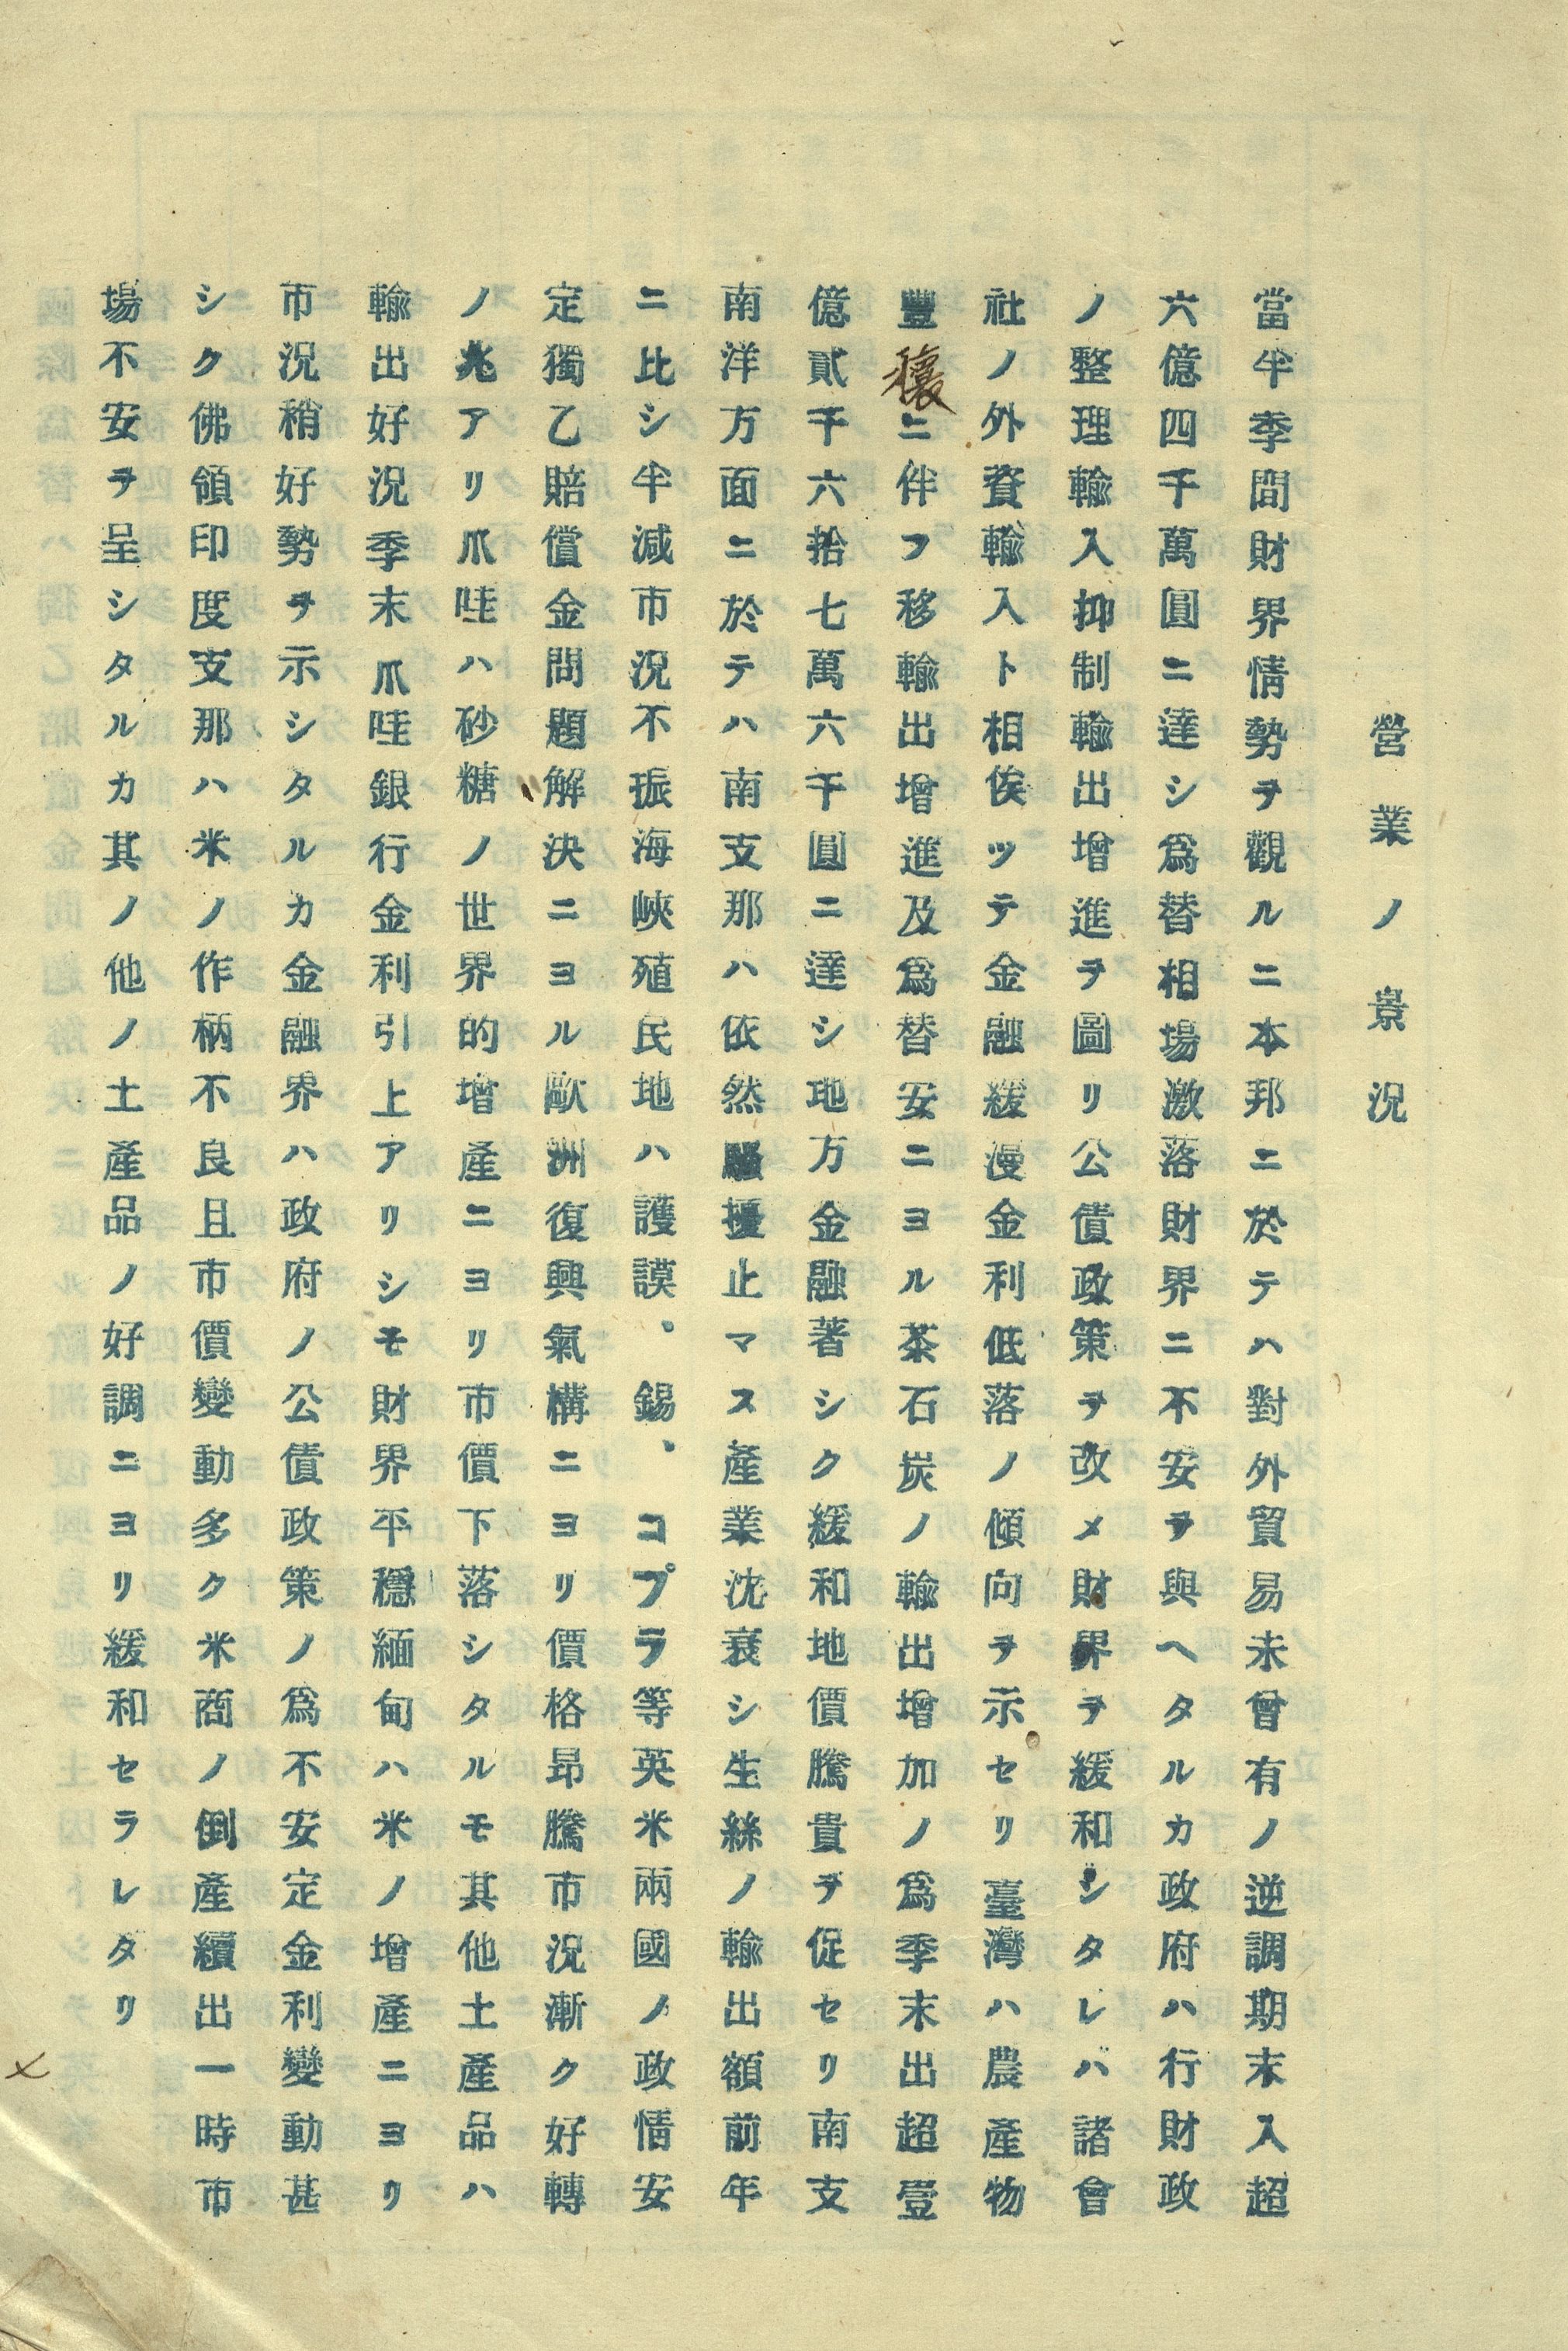 營業ノ景況
當半季間財界情勢ヲ觀ルニ本邦ニ於テハ對外貿易未曾有ノ逆調期末入超
六億四千萬圓ニ達シ爲替相場激落財界ニ不安ヲ與ヘタルカ政府ハ行財政
ノ整理輸入抑制輸出增進ヲ圖リ公債政策ヲ改メ財界ヲ緩和シタレハ諸會
社ノ外資輸入ト相俟ツテ金融緩漫金利低落ノ傾向ヲ示セリ臺灣ハ農產物
豐穰ニ伴フ移輸出增進及爲替安ニヨル茶石炭ノ輸出增加ノ爲季末出超壹
億貳千六拾七萬六千圓ニ達シ地方金融著シク緩和地價騰貴ヲ促セリ南支
南洋方面ニ於テハ南支那ハ依然騷擾止マス產業沈衰シ生絲ノ輸出額前年
ニ比シ半減市況不振海峽殖民地ハ護謨、錫、コプラ等英米兩國ノ政情安
定獨乙賠償金問題解決ニヨル歐洲復興氣構ニヨリ價格昂騰市況漸ク好轉
ノ兆アリ爪哇ハ砂糖ノ世界的增產ニヨリ市價下落シタルモ其他土產品ハ
輸出好況季末爪哇銀行金利引上アリシモ財界平穩緬甸ハ米ノ增產ニヨリ
市況稍好勢ヲ示シタルカ金融界ハ政府ノ公債政策ノ爲不安定金利變動甚
シク佛領印度支那ハ米ノ作柄不良且市價變動多ク米商ノ倒產續出一時市
場不安ヲ呈シタルカ其ノ他ノ土產品ノ好調ニヨリ緩和セラレタリ